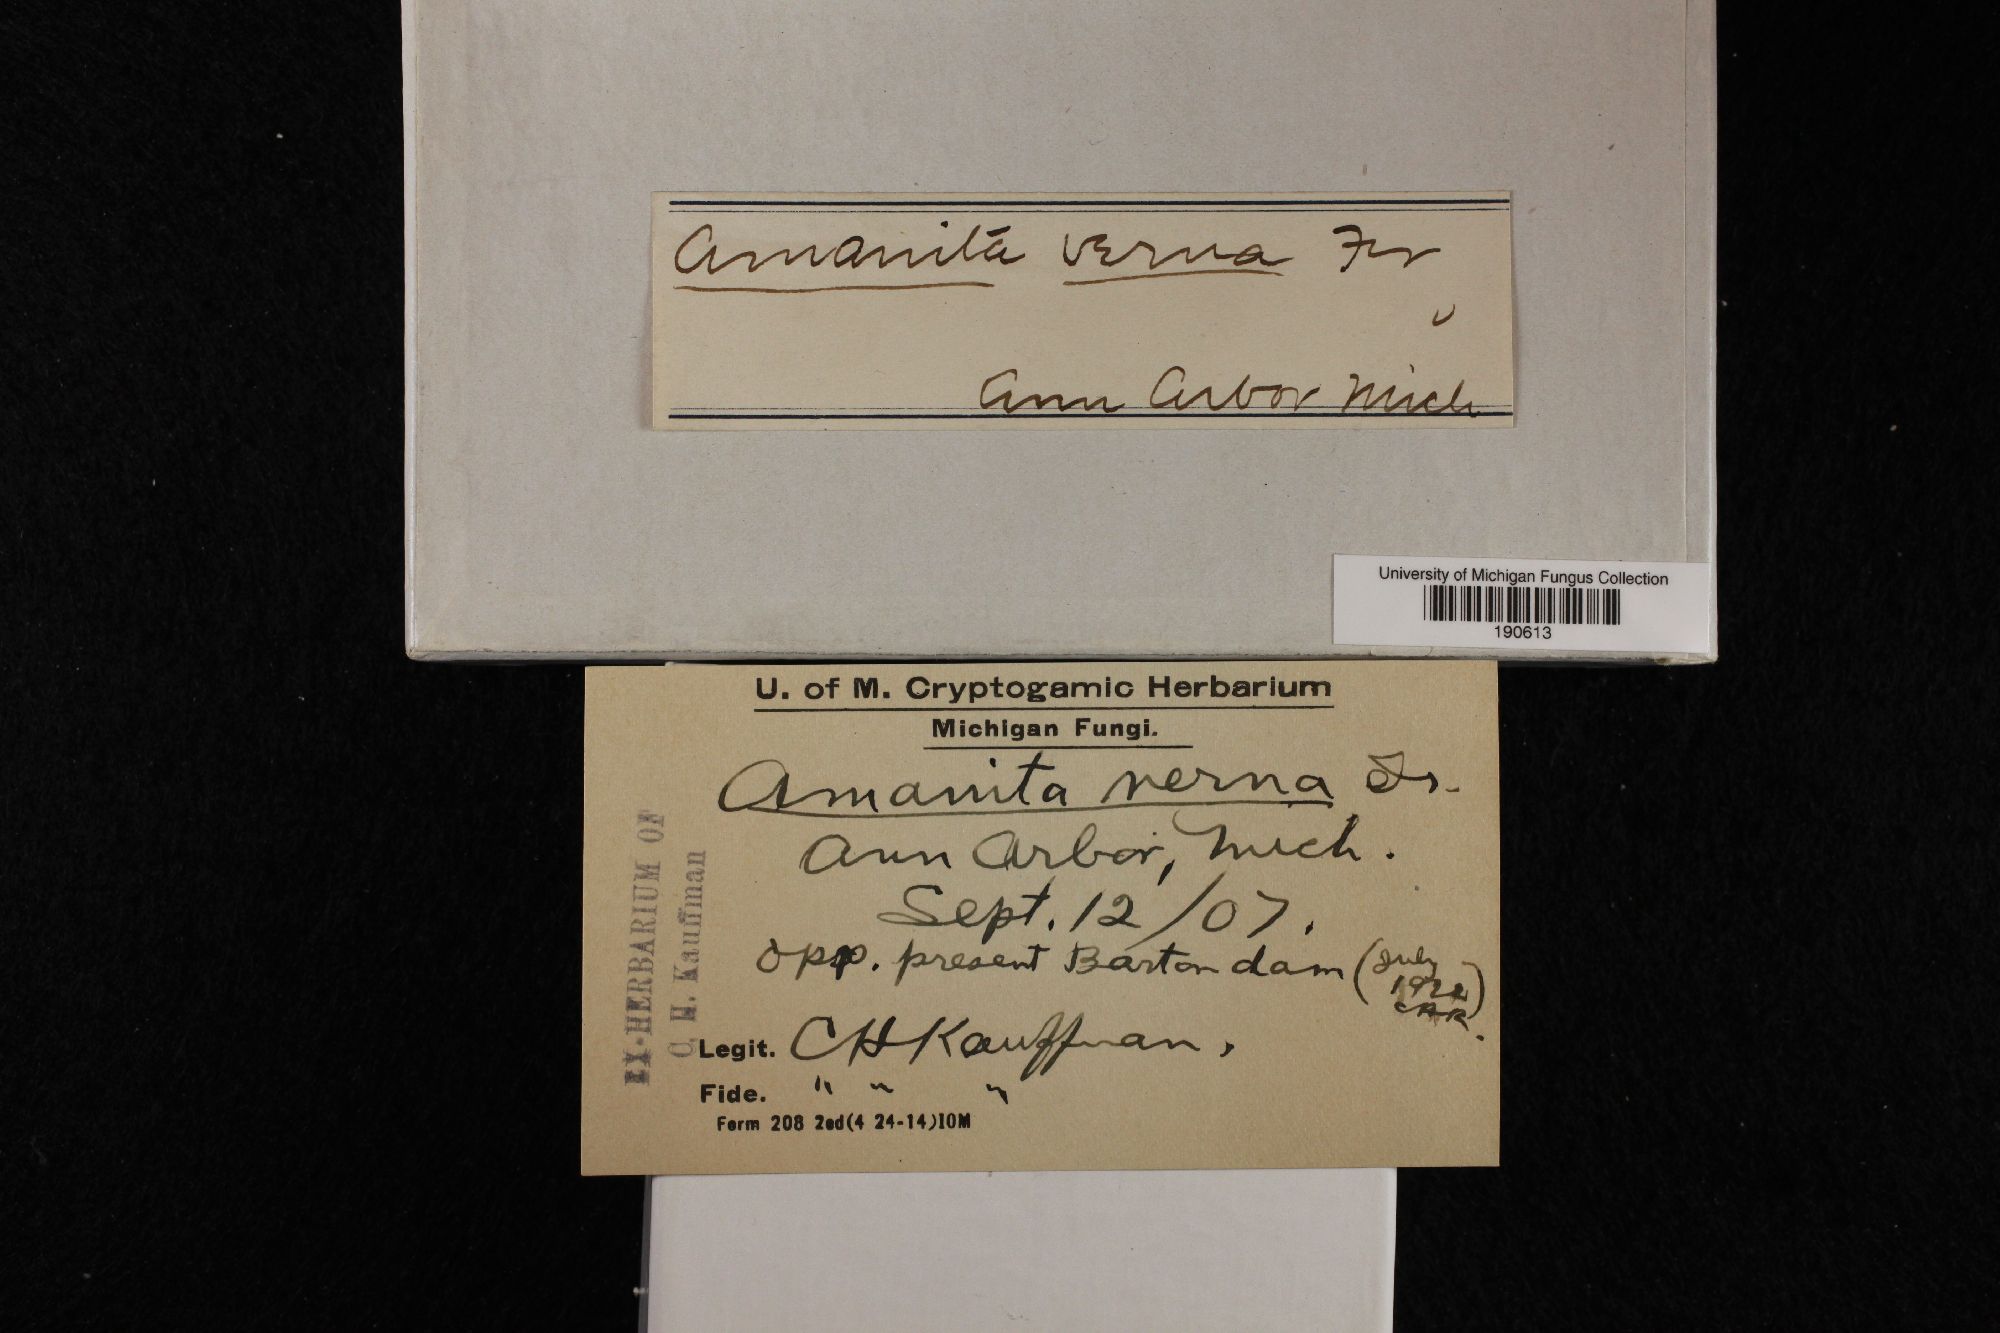 Amanita verna Fr
Ann Arbor Mich
University of Michigan Fungus Collection
190613
U. of M. Cryptogamic Herbarium
Michigan Fungi.
Amanita verna Fr.
Ann Arbor, Mich.
Sept. 12/07.
opp. present Barton dam (July
1922)
EX-HERBARIUM OF
C. H. Kauffman
Legit. CHKauffman.
Fide. " " "
Form 208 2ed(4 24-14)10M